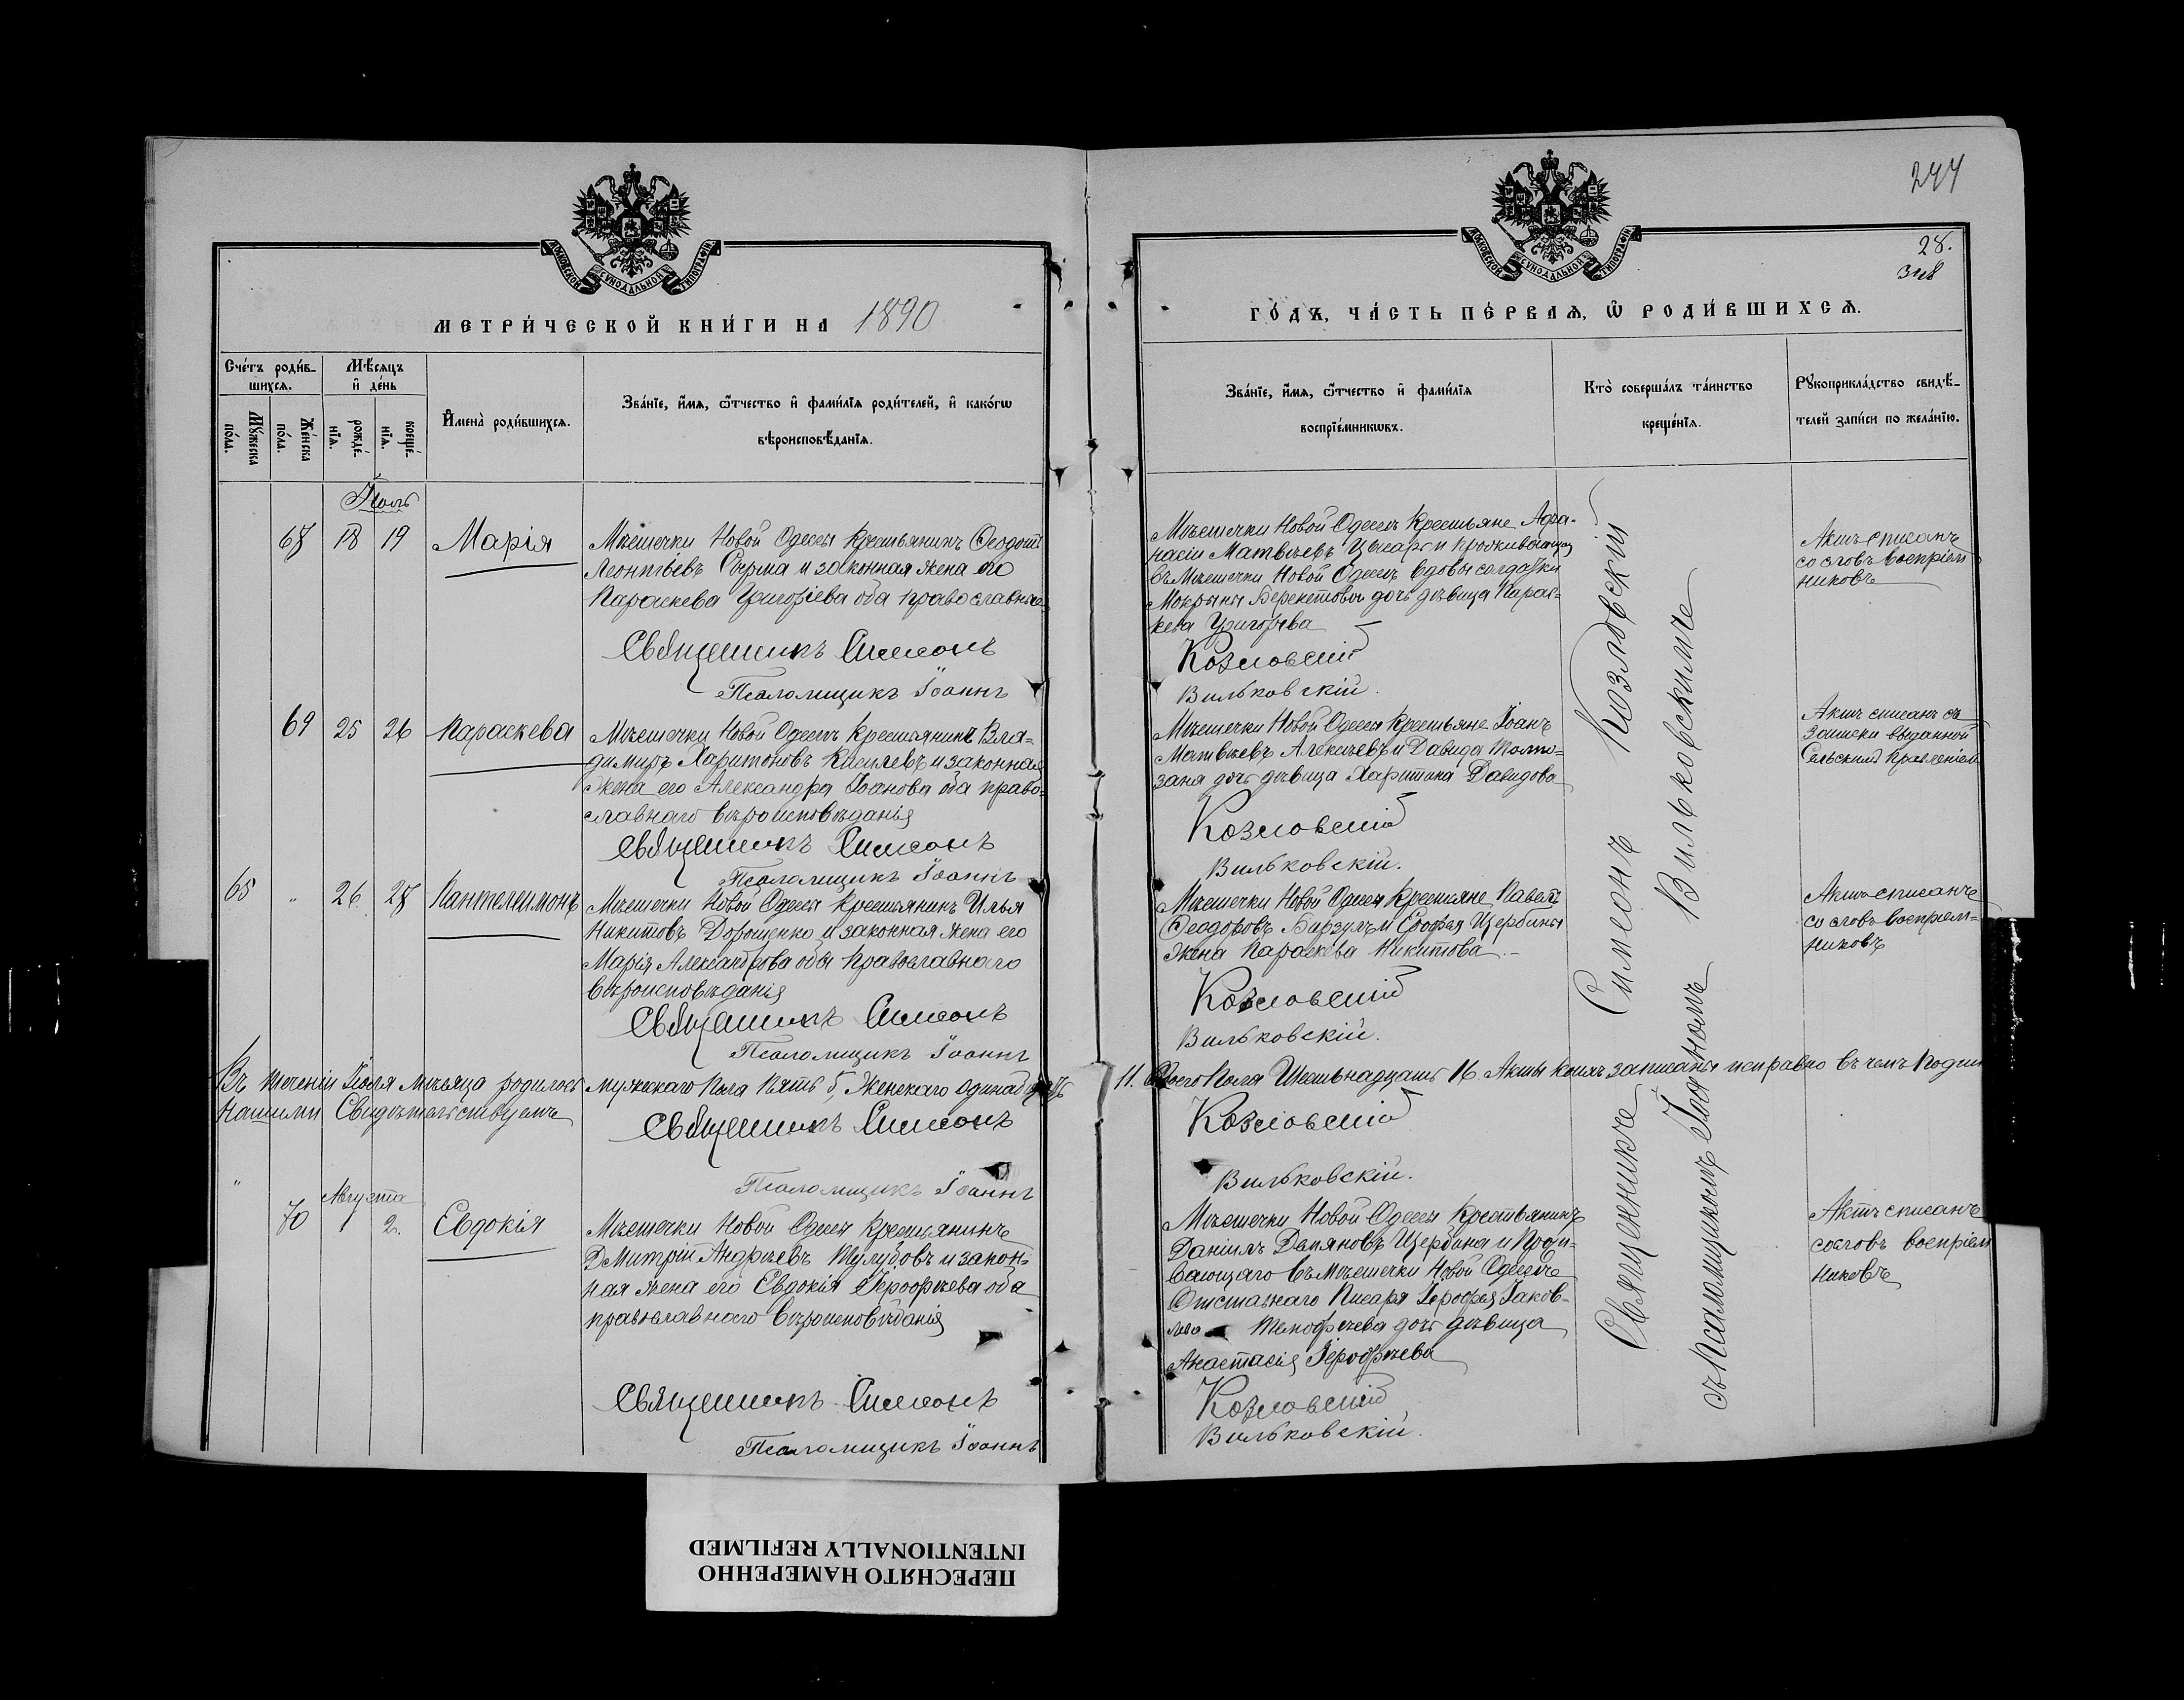 244
28.
МОСКОВСКОЙ СѴНОДАЛЬНОЙ ТИПОГРАФІИ
МОСКОВСКОЙ СѴНОДАЛЬНОЙ ТИПОГРАФІИ
МЕТРИ́ЧЕСКОЙ КНИ́ГИ НА 1890
ГО́ДЪ, ЧА́СТЬ ПЕ́РВАѦ, Ѡ҆ РОДИ́ВШИХСѦ.
Сче́тъ роди́в-
шихсѧ.
Мѣ́сѧцъ
и҆ де́нь
Мꙋ́жеска
по́ла.
Же́нска
по́ла.
рожде́-
нїѧ.
креще́-
нїѧ.
И҆мена̀ роди́вшихсѧ.
Зва́нїе, и҆́мѧ, ѻ҆́тчество и҆ фами́лїѧ роди́телей, и҆ како́гѡ
вѣроисповѣ́данїѧ.
Зва́нїе, и҆́мѧ, ѻ҆́тчество и҆ фами́лїѧ
воспрїе́мникѡвъ.
Кто̀ соверша́лъ та́инство
креще́нїѧ.
Рꙋкоприкла́дство свидѣ́-
телей за́писи по жела́нїю.
Іюль
68 18 19 Марія
Мѣстечки Новой Одессы крестьянинъ Ѳеодотъ
Леонтіевъ Сырма и законная жена его
Параскева Григоріева оба православные
Священникъ Симеонъ
Псаломщикъ Іоаннъ
Мѣстечки Новой Одессы крестьяне Афа-
насій Матвѣевъ Цыкарь и проживающей
въ Мѣстечки Новой Одессѣ вдовы солдатки
Мокрыны дочь дѣвица Парас-
кева Григорьева
Козловскій
Вильковскій.
Актъ списанъ
со словъ воспріем
никовъ
69 25 26 Параскева
Мѣстечки Новой Одессы крестьянинъ Вла-
димиръ Харитоновъ Киселевъ и законная
жена его Александра Іоанова оба право-
славнаго вѣроисповѣданія
Священникъ Симеонъ
Псаломщикъ Іоаннъ
Мѣстечки Новой Одессы крестьяне Іоанъ
Матвѣевъ Алексѣевъ и Давида
дочь дѣвица Харитина Давидова
Козловскій
Вильковскій.
Актъ списанъ съ
записки выданной
Сельскимъ правленіемъ
65 " 26 28 Пантелеимонъ
Мѣстечки Новой Одессы крестьянинъ Илья
Никитовъ Дорошенко и законная жена его
Марія Александрова оба православнаго
вѣроисповѣданія
Священникъ Симеонъ
Псаломщикъ Іоаннъ
Мѣстечки Новой Одессы крестьяне Павелъ
Ѳеодоровъ Бирзулъ и Ерофея Щербины
жена Параскева Никитова.-
Козловскій
Вильковскій.
Актъ списанъ
со словъ воспріем-
никовъ
Въ теченіи Іюля мѣсяца родилось мужескаго пола пять 5, женскаго одинадцать 11. Обоего пола Шестьнадцать 16 Акты коихъ записаны исправно въ чемъ подпи
Нашими Свидѣтельствуемъ
Священникъ Симеонъ
Козловскій
Псаломщикъ Іоаннъ
Вильковскій.
Августа
" 70 1 2. Евдокія
Мѣстечки Новой Одессы крестьянинъ
Дмитрій Андрѣевъ Тулубовъ и закон-
ная жена его Евдокія Іерофѣева оба
православнаго вѣроисповѣданія
Священникъ Симеонъ
Псаломщикъ Іоаннъ
Мѣстечки Новой Одессы крестьянинъ
Даніилъ Демяновъ Щербина и прожи-
вающаго въ Мѣстечки Новой Одессѣ
Отставнаго Писаря Іерофея Іаков-
лева дочь дѣвица
Анастасія Іерофѣева
Козловскій
Вильковскій.
Актъ списанъ
со словъ воспріем
никовъ
Священникъ Симеонъ Козловскій
съ Псаломщикомъ Іоанномъ Вильковскимъ
ПЕРЕСНЯТО НАМЕРЕННО
INTENTIONALLY REFILMED